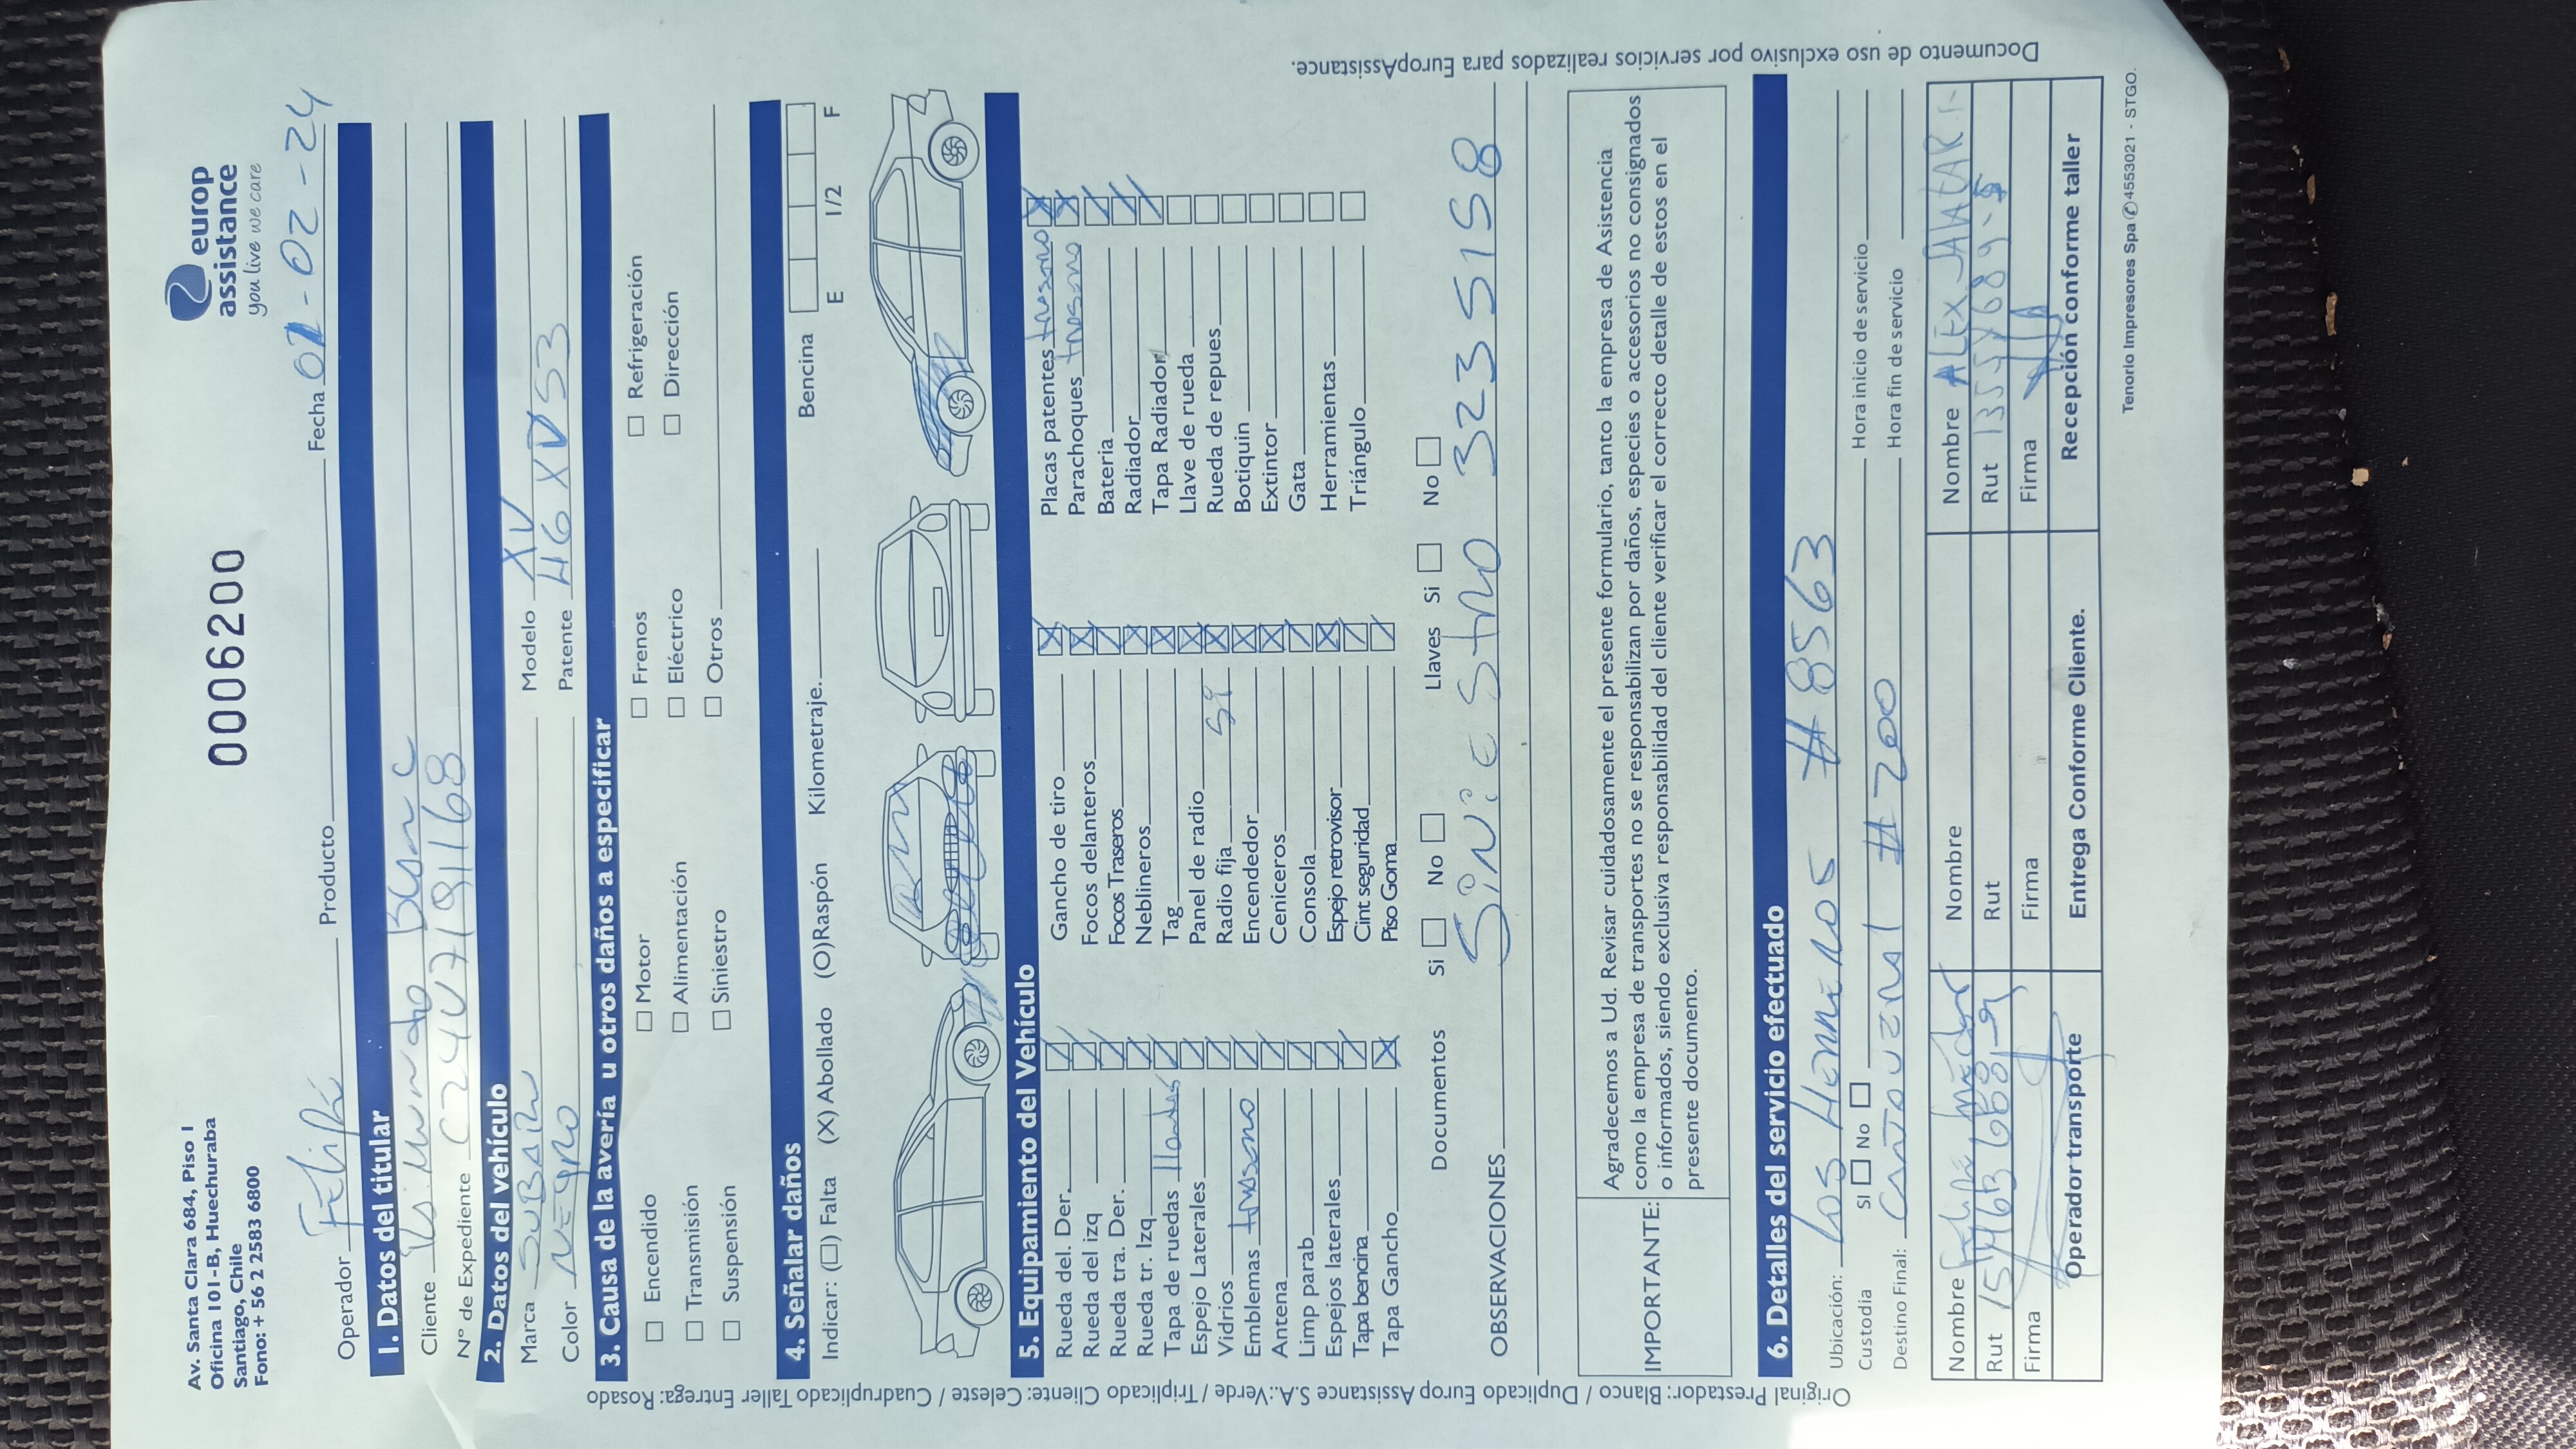 Av. Santa Clara 684, Piso 1
Oficina 101-B, Huechuraba
Santiago, Chile
Fono: + 56 2 2583 6800
0006200
europ
assistance
you live we care
Operador Felipe Producto Fecha 01-02-24
1. Datos del titular
Cliente
N° de Expediente
2. Datos del vehículo
Marca SUBARU Modelo XV
Color NEGRO Patente
3. Causa de la avería u otros daños a especificar
Encendido Motor Frenos Refrigeración
Transmisión Alimentación Eléctrico Dirección
Suspensión Siniestro Otros
4. Señalar daños
Indicar: (☐) Falta (X) Abollado (O)Raspón Kilometraje. Bencina E 1/2 F
5. Equipamiento del Vehículo
Rueda del. Der. Gancho de tiro Placas patentes trasero
Rueda del izq Focos delanteros Parachoques trasero
Rueda tra. Der. Focos Traseros Bateria
Rueda tr. Izq Neblineros Radiador
Tapa de ruedas llantas Tag Tapa Radiador
Espejo Laterales Panel de radio Llave de rueda
Vidrios Radio fija si Rueda de repues
Emblemas trasero Encendedor Botiquin
Antena Ceniceros Extintor
Limp parab Consola Gata
Espejos laterales Espejo retrovisor Herramientas
Tapa bencina Cint seguridad Triángulo
Tapa Gancho Piso Goma
Documentos Si No Llaves Si No
OBSERVACIONES Siniestro 3235158
IMPORTANTE: Agradecemos a Ud. Revisar cuidadosamente el presente formulario, tanto la empresa de Asistencia
como la empresa de transportes no se responsabilizan por daños, especies o accesorios no consignados
o informados, siendo exclusiva responsabilidad del cliente verificar el correcto detalle de estos en el
presente documento.
6. Detalles del servicio efectuado
Ubicación: Los # 8563
Custodia SI No Hora inicio de servicio
Destino Final: # 200 Hora fin de servicio
Nombre Felipe Nombre Nombre ALEX
Rut Rut Rut
Firma Firma Firma
Operador transporte Entrega Conforme Cliente. Recepción conforme taller
Tenorio Impresores Spa ✆ 45530 21 - STGO.
Original Prestador: Blanco / Duplicado Europ Assistance S.A.:Verde / Triplicado Cliente: Celeste / Cuadruplicado Taller Entrega: Rosado
Documento de uso exclusivo por servicios realizados para EuropAssistance.